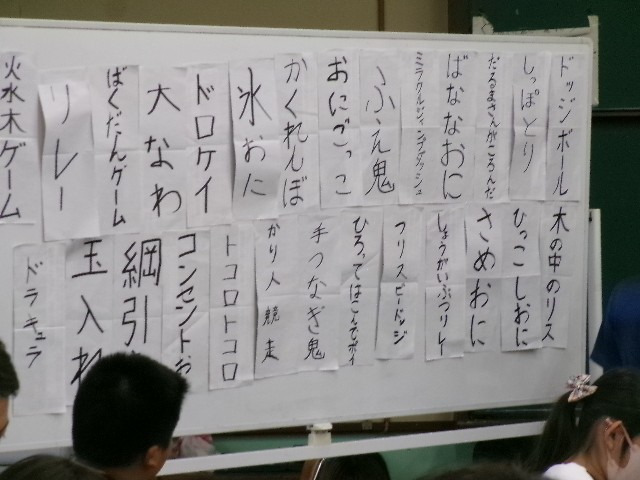 ドッジボール
しっぽとり
だるまさんがころんだ
ばななおに
ふえ鬼
おにごっこ
かくれんぼ
氷おに
ドロケイ
大なわ
ばくだんゲーム
リレー
火水木ゲーム
木の中のリス
ひっこしおに
さめおに
しょうがいぶつリレー
フリスビードッジ
手つなぎ鬼
かり人競走
トコロトコロ
コンセント
綱引
玉入れ
ドラキュラ